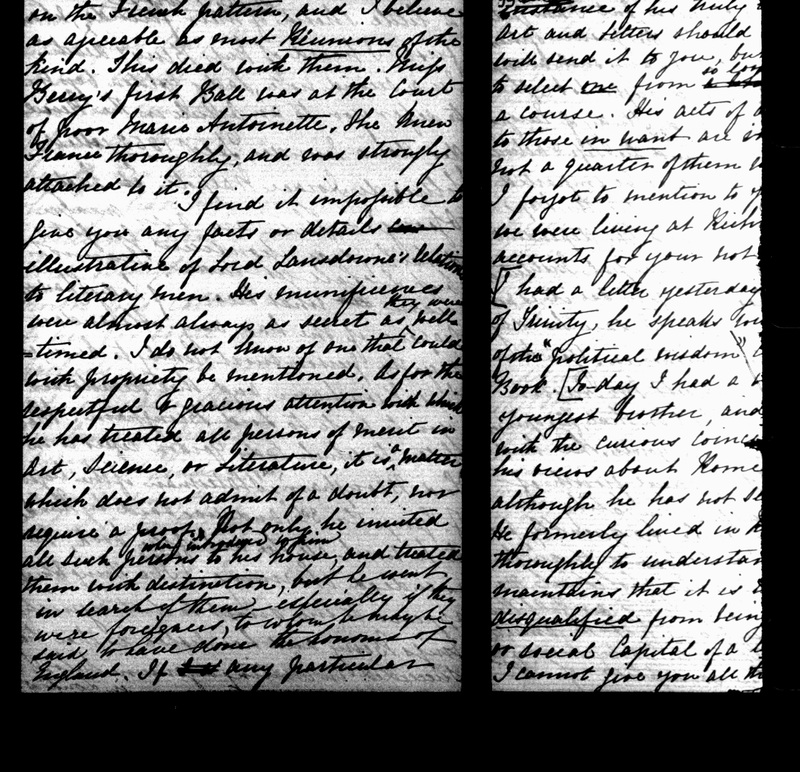 on the French pattern, and I believe
as agreeable as most Réunions of the
kind. This died with them. Miss
Berry's first Ball was at the Court
of poor Marie Antoinette. She knew
France thoroughly, and was strongly
attached to it.
I find it impossible to
give you any facts or details
illustrative of Lord Lansdowne's relations
to literary men. His munificences
were almost always as secret as they were well
=timed. I do not know of one that could
with propriety be mentioned. As for the
respectful & gracious attention with which
he has treated all persons of merit in
Art, Science, or Literature, it is a matter
which does not admit of a doubt, nor
require a proof. Not only he invited
all such persons when introduced to him to his house, and treated
them with distinction, but he went
in search of them – especially if they
were foreigners, to whom he may be
said to have done the honours of
England. If any particular
instance of his
Art and Letters should
will send it to you, but
to select one from
a course. His acts of
to those in want are
not a quarter of them
I forgot to mention to
we were living at
accounts for your not
[I had a letter yesterday
of Trinity, he speaks
of the "political wisdom"
Book. [To-day I had a
youngest brother, and
with the curious
his views about Rome
although he has not
He formerly lived in
thoroughly to
maintains that it is
disqualified from being
or social Capital of a
I cannot give you all